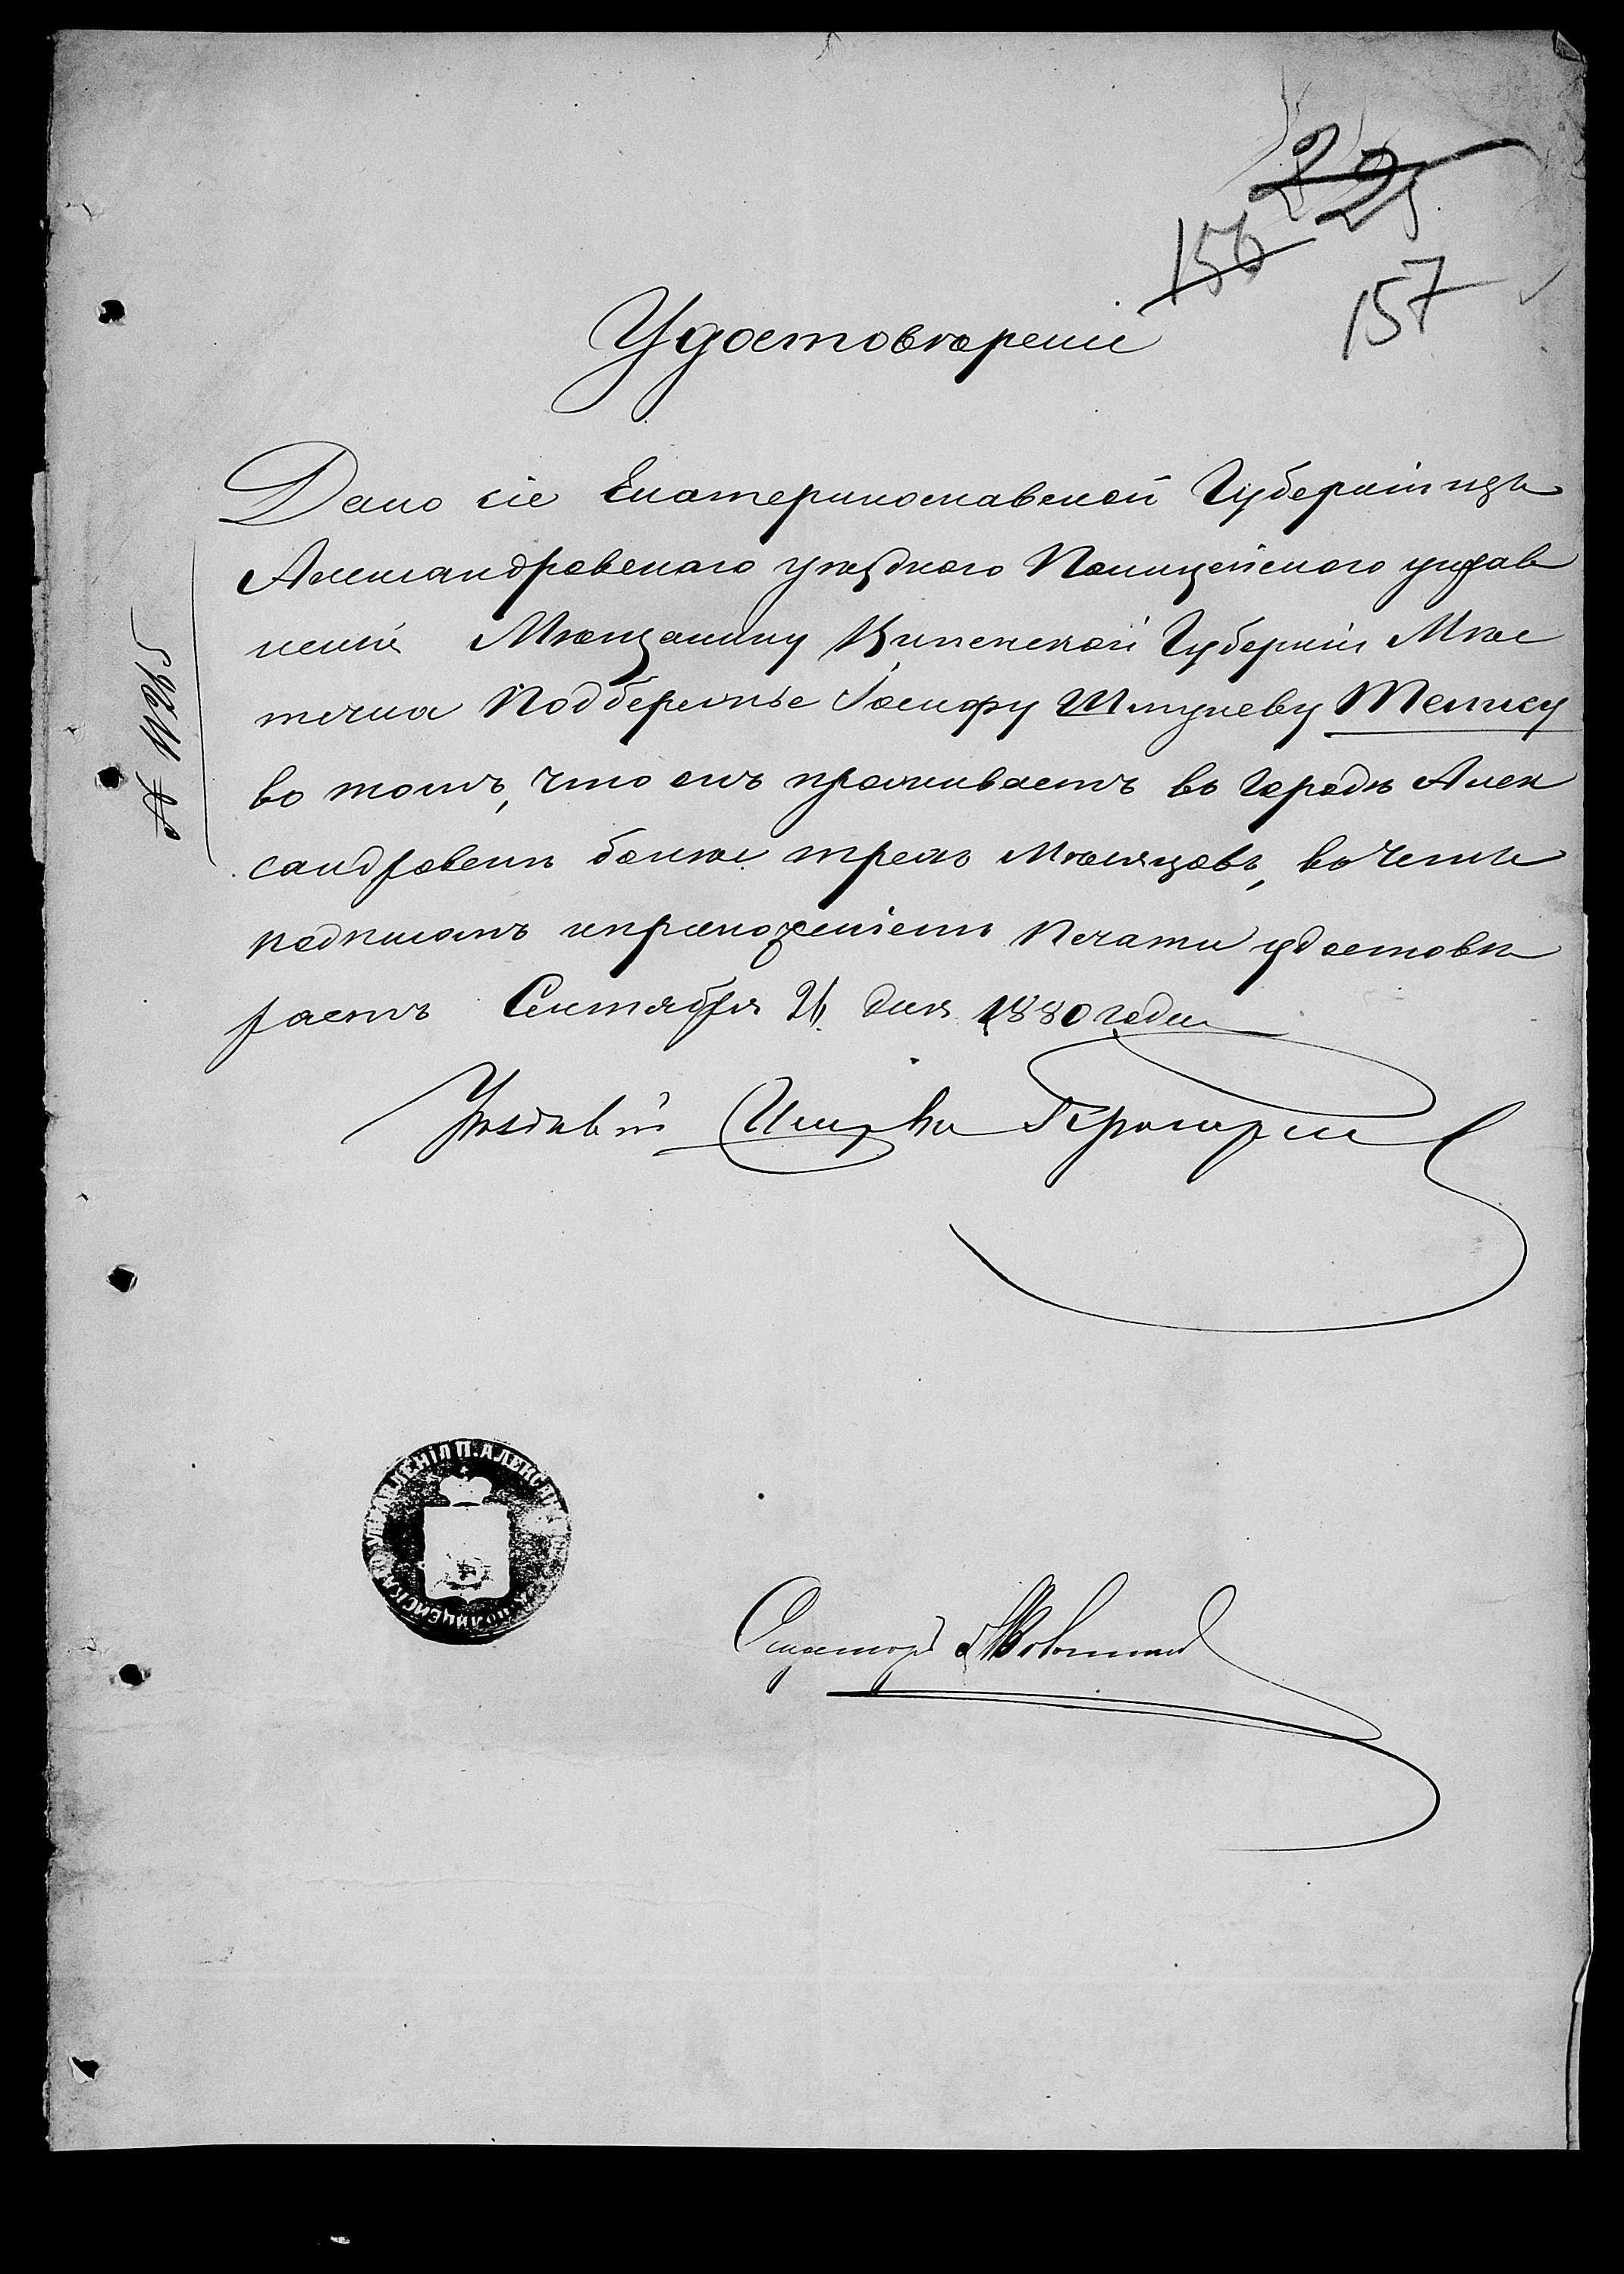 225
156
157
Удостовѣреніе
Дано сіе Екатеринославской Губерніи изъ
Александровскаго уѣзднаго Полицейскаго управ
ленія Мѣщанину Виленской Губерніи Мѣс
течка Подберезье Іосифу Шмулеву
во томъ, что онъ проживаетъ въ городѣ Алек
сандровскѣ болѣе трехъ Мѣсяцовъ, въ чемъ
подписомъ и приложеніемъ Печати удостовѣ
ряетъ Сентября 26 дня 1880 года
Уѣздный
УПРАВЛЕНІЯ П. АЛЕКСАНДРОВСКА ПОЛИЦЕЙСКАГО